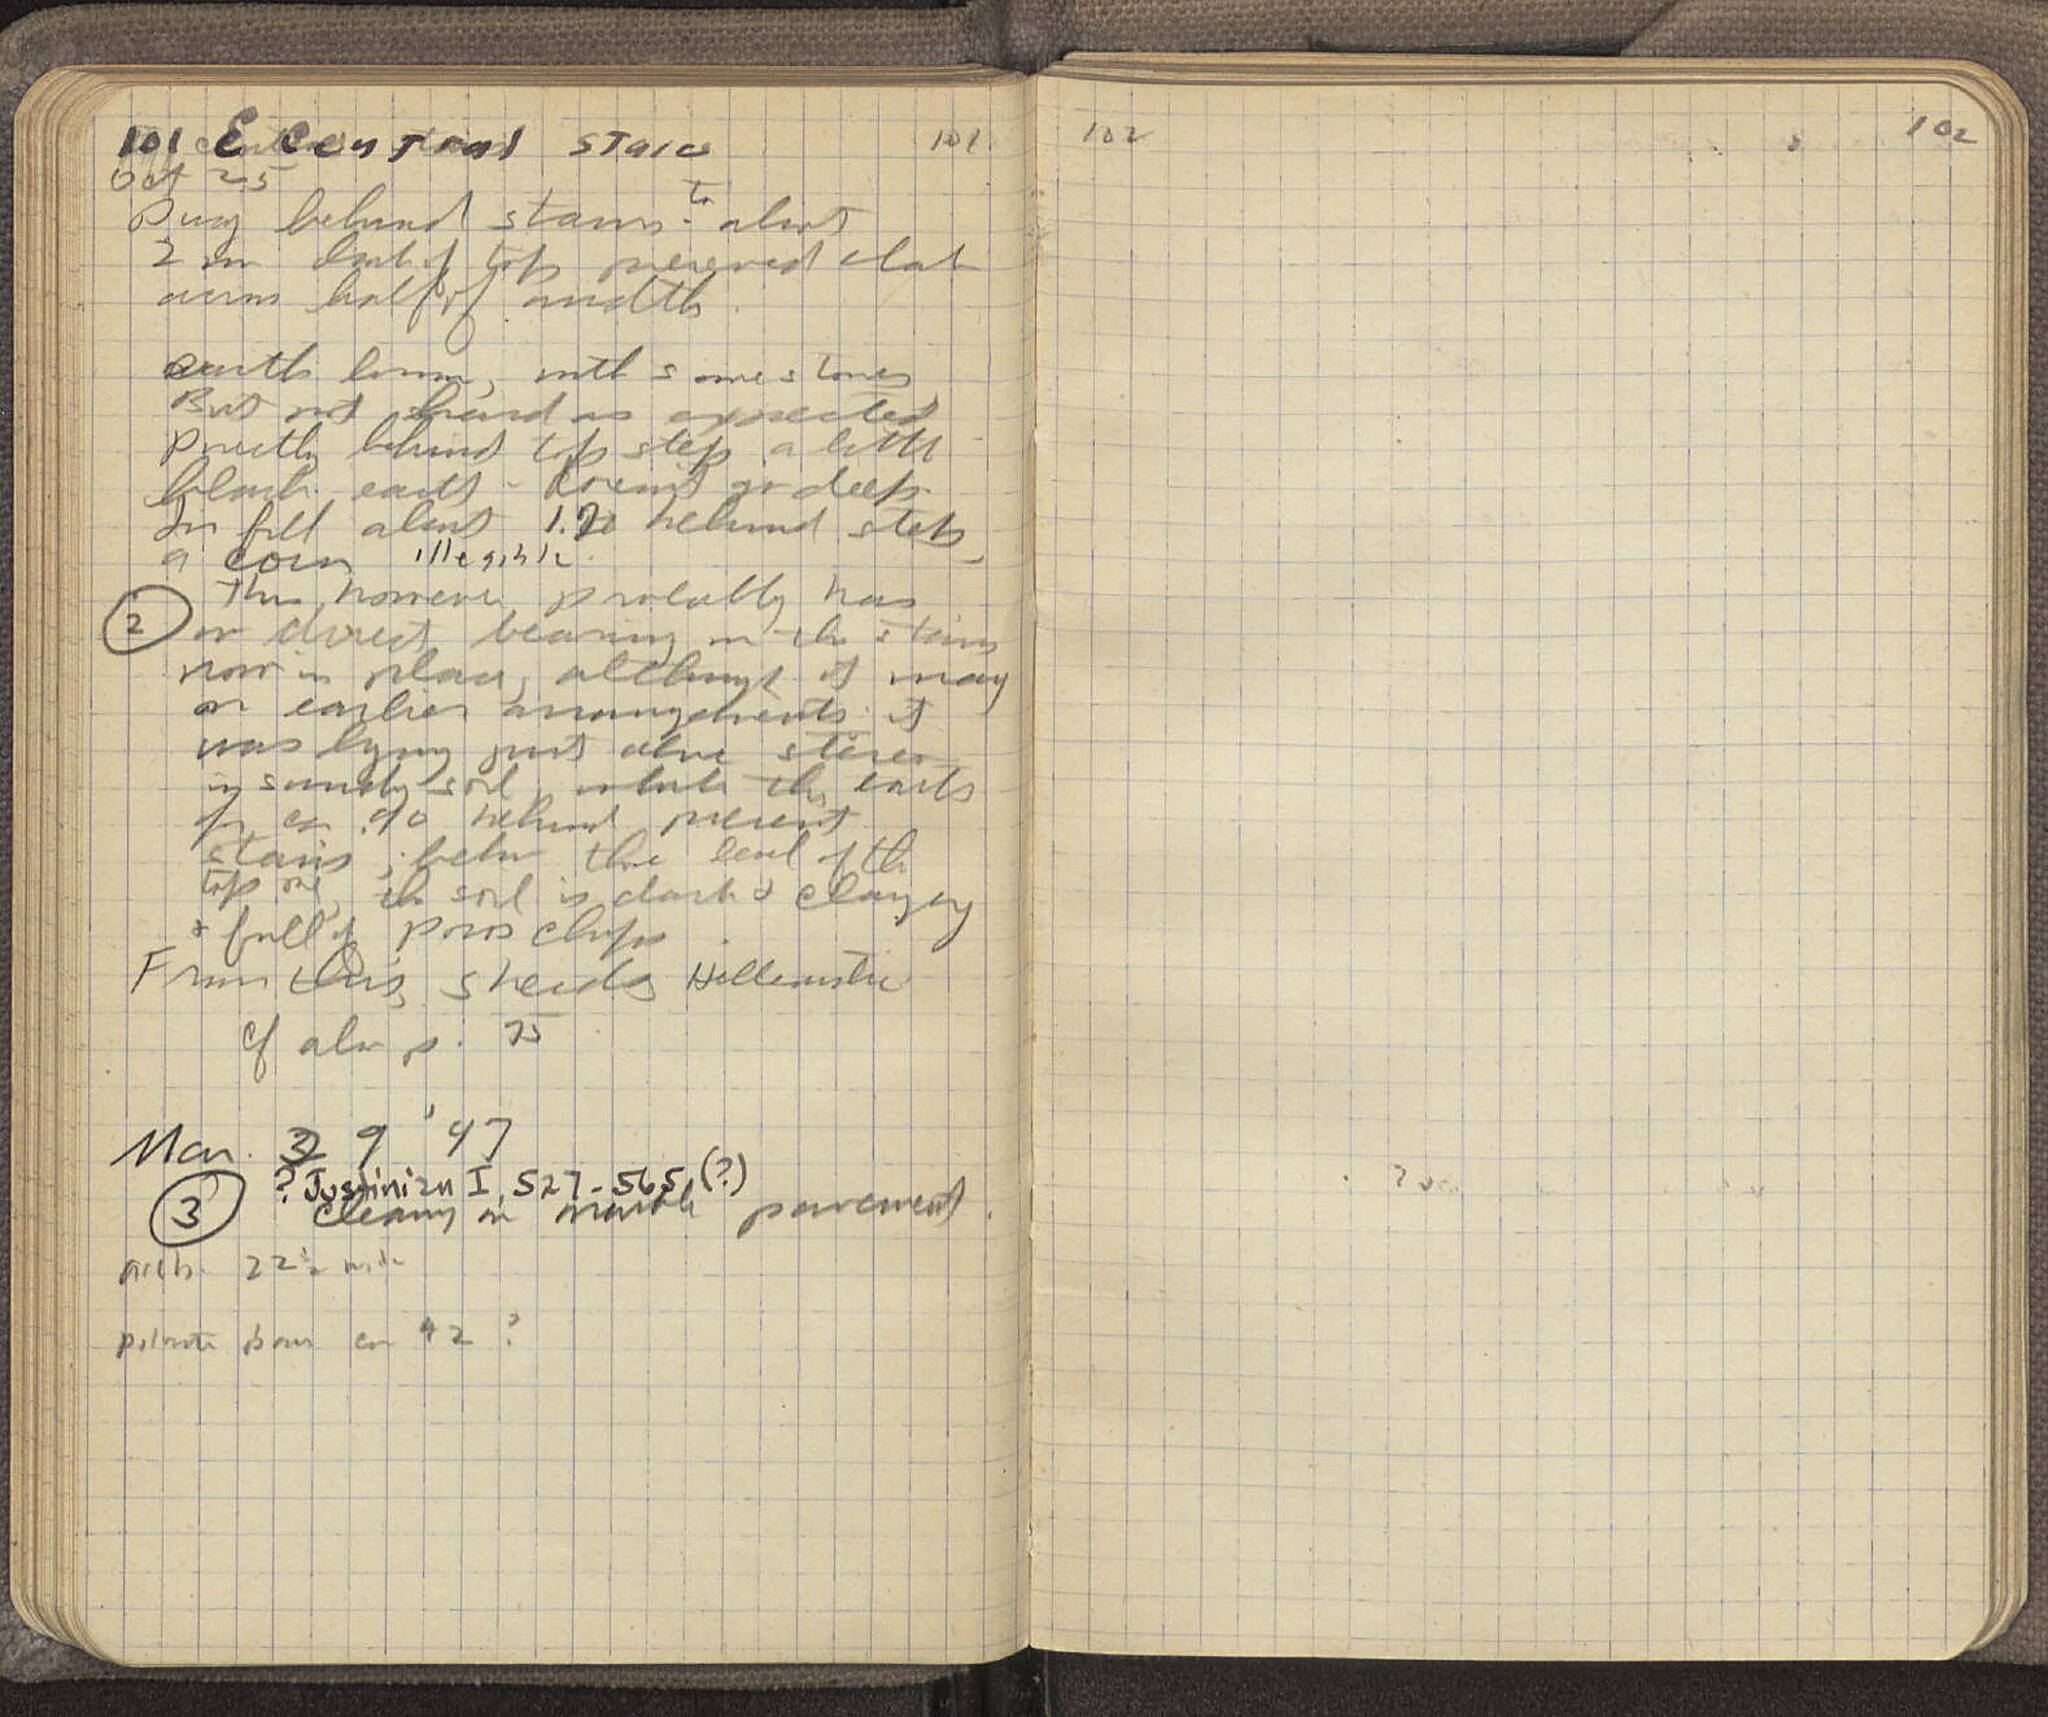 101 E Central stairs 101
Oct 25
Dug behind stairs to about
2 m back of top preserved slab
across half of width.
earth brown, with some stones
But not hard as expected
Directly behind top step a little
black earth - doesn't go deep.
In fill about 1.20 behind step,
a coin illegible.
This, however, probably has
2 no direct bearing on the stairs
now in place, although it may
on earlier arrangements. it
was lying just above stereo
in sandy soil, while the earth
for ca .90 behind present
stairs, below the level of the
top one, the soil is dark & clayey
& full of poros chips
From this, sherds Hellenistic
cf also p. 75
Mar. 9 '47
? Justinian I, 527-565 (?)
3 cleany on marble pavement.
arch. 22½ wide
pilaster base ca 42 ?
102 102